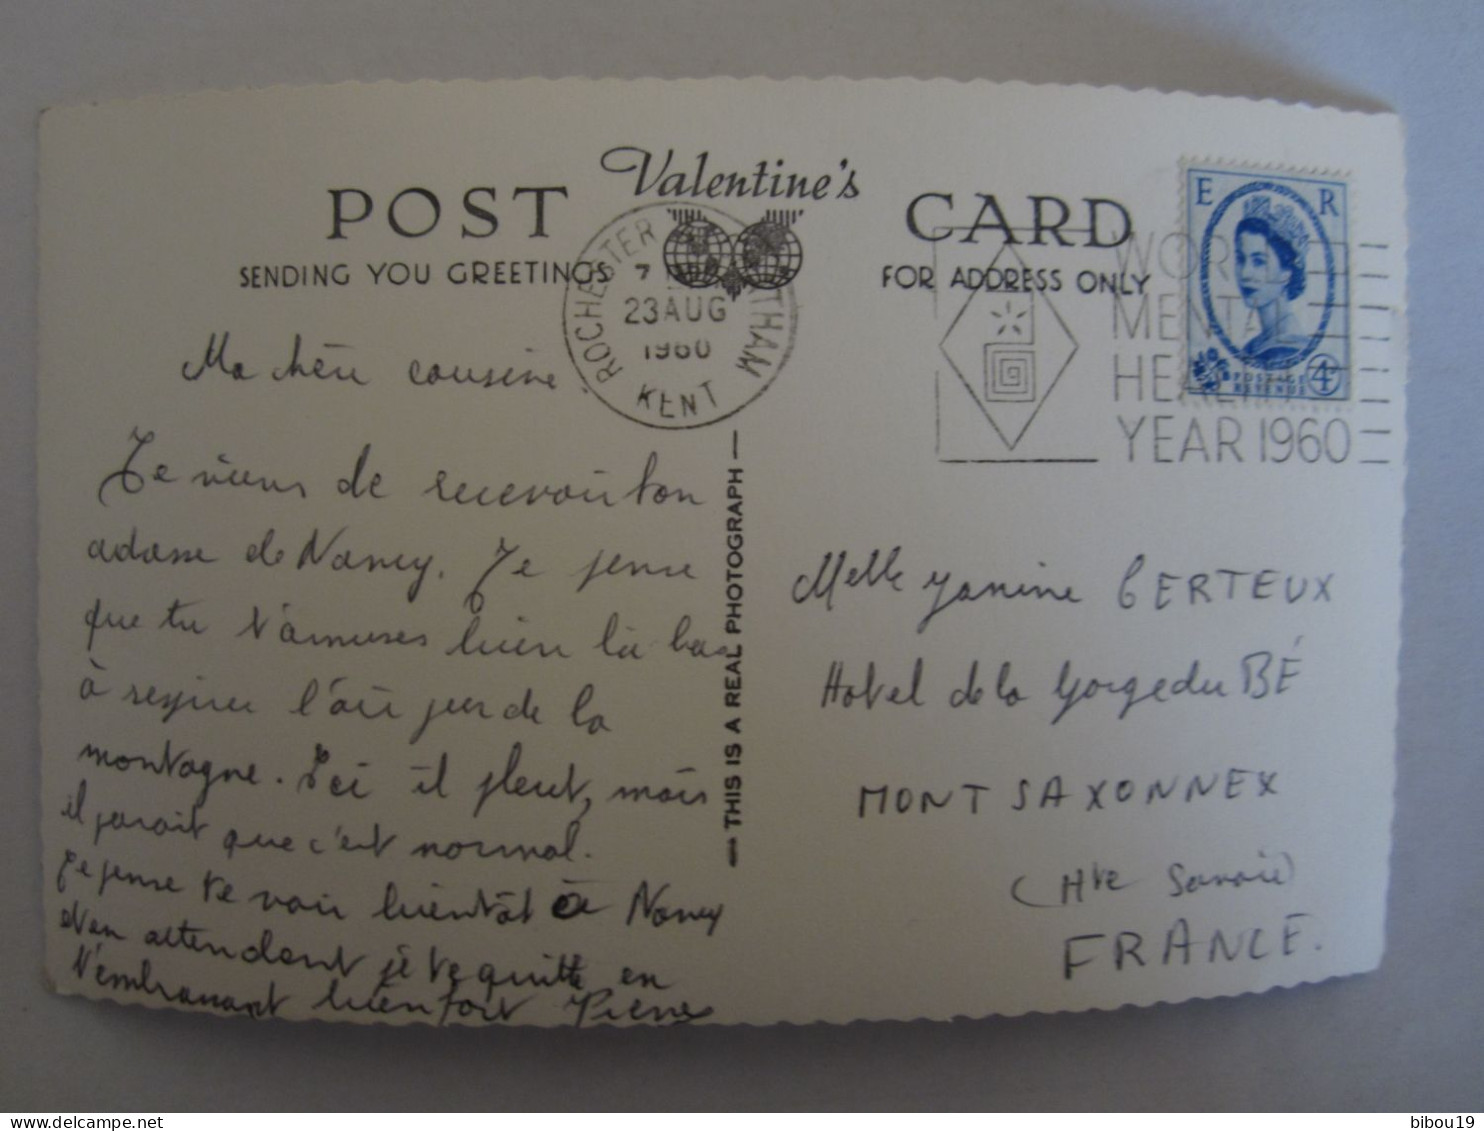 Valentine's
POST CARD
SENDING YOU GREETINGS
FOR ADDRESS ONLY
ROCHESTER CHATHAM
7
23 AUG
1960
KENT
WORLD
MENTAL
HEALTH
YEAR 1960
E R
POSTAGE
REVENUE
4D
THIS IS A REAL PHOTOGRAPH
Ma chère cousine
Je viens de recevoir ton
adresse de Nancy. Je pense
que tu t'amuses bien là bas
à respirer l'air pur de la
montagne. Ici il pleut, mais
il parait que c'est normal.
Je pense te voir bientôt à Nancy
et en attendant je te quitte en
t'embrassant bien fort Pierre
Melle Yanine BERTEUX
Hotel de la Gorge du BÉ
MONT SAXONNEX
(Hte Savoie)
FRANCE.
bibou19